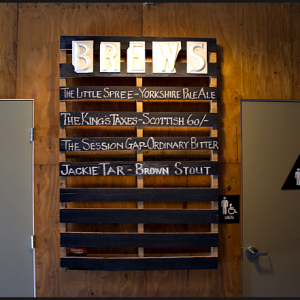 BREWS
THE LITTLE SPREE-YORKSHIRE PALE ALE
THE KING'S TAXES-SCOTTISH 60/-
THE SESSION GAP-ORDINARY BITTER
JACKIE TAR-BROWN STOUT
MEN